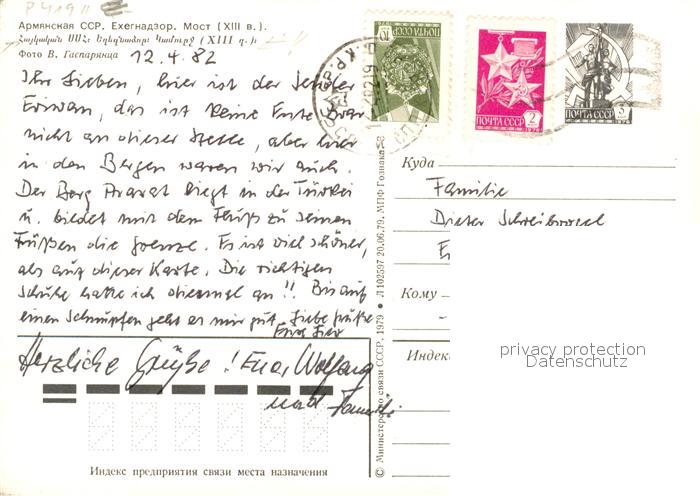 Армянская ССР. Ехегнадзор. Мост (XIII в.).
Հայկական ՍՍՀ. Եղեգնաձոր. Կամուրջ (XIII դ.)
Фото В. Гаспарянца
12.4.82
Ihr Lieben, hier ist der Sender
Eriwan, das ist keine Ente
nicht an dieser Stelle, aber hier
in den Bergen waren wir auch.
Der Berg Ararat liegt in der Türkei
u. bildet mit dem Fluß zu seinen
Füßen die Grenze. Es ist viel schöner,
als auf dieser Karte. Die richtigen
Schuhe hatte ich diesmal an!! Bis auf
einen Schnupfen geht es mir gut. Liebe Grüße
Herzliche Grüße! Euer Wolfgang
und
Индекс предприятия связи места назначения
© Министерство связи СССР. 1979 • Л 102597 20.06.79. МПФ Гознака
ПОЧТА СССР
10
ПОЧТА СССР 2
1976
ПОЧТА СССР 3
1976
Куда
Familie
Dieter
Кому
Индекс
privacy protection
Datenschutz